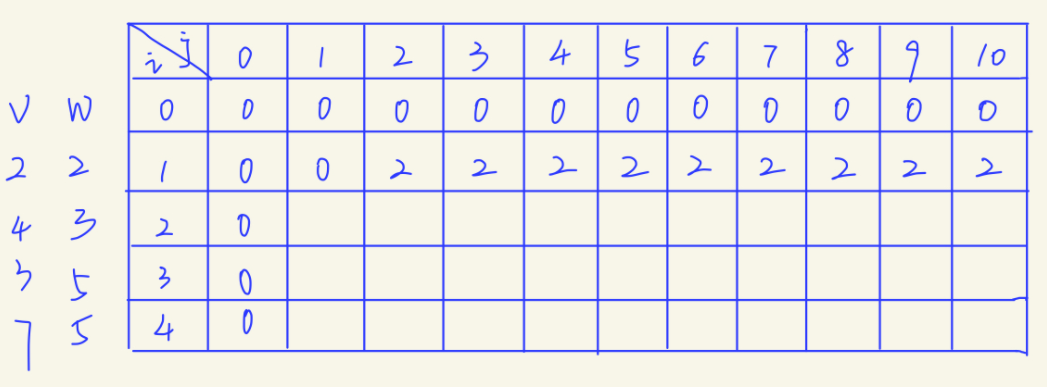 i j 0 1 2 3 4 5 6 7 8 9 10
V W 0 0 0 0 0 0 0 0 0 0 0 0
2 2 1 0 0 2 2 2 2 2 2 2 2 2
4 3 2 0
3 5 3 0
7 5 4 0